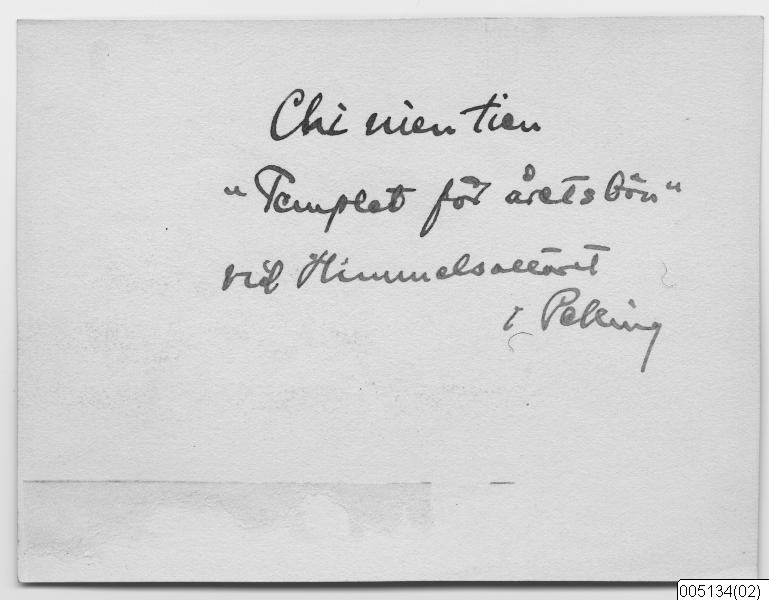 Chi nien tien
"Templet för årets bön"
vid Himmelsaltaret
i Peking
005134(02)